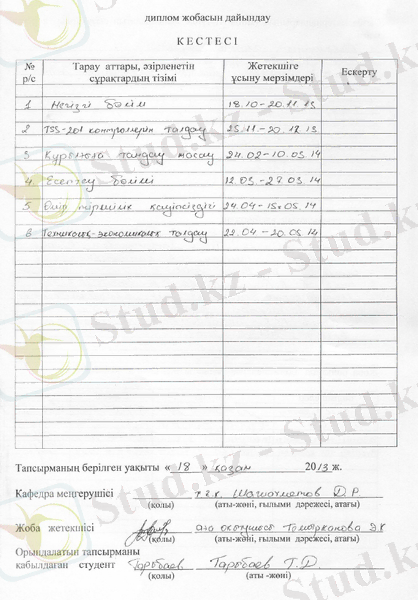 диплом жобасын дайындау
КЕСТЕСІ
№ р/с
Тарау аттары, әзірленетін сұрақтардың тізімі
Жетекшіге ұсыну мерзімдері
Ескерту
1 Негізгі бөлім 18.10-20.11.13
2 TSS-201 контроллерін талдау 25.11-20.12.13
3 Құрылғыға талдау жасау 24.02-10.03.14
4 Есептеу бөлімі 12.03-27.03.14
5 Өмір тіршілік қауіпсіздігі 24.04-15.05.14
6 Техникалық-экономикалық талдау 22.04-20.05.14
Тапсырманың берілген уақыты «18» қазан 2013 ж.
Кафедра меңгерушісі т.ғ.к. Д.Р
(қолы) (аты-жөні, ғылыми дәрежесі, атағы)
Жоба жетекшісі аға оқытушы
(қолы) (аты-жөні, ғылыми дәрежесі, атағы)
Орындалатын тапсырманы
қабылдаған студент Тарбаев Тарбаев Т.Д
(қолы) (аты -жөні)
Stud.kz - Stud.kz